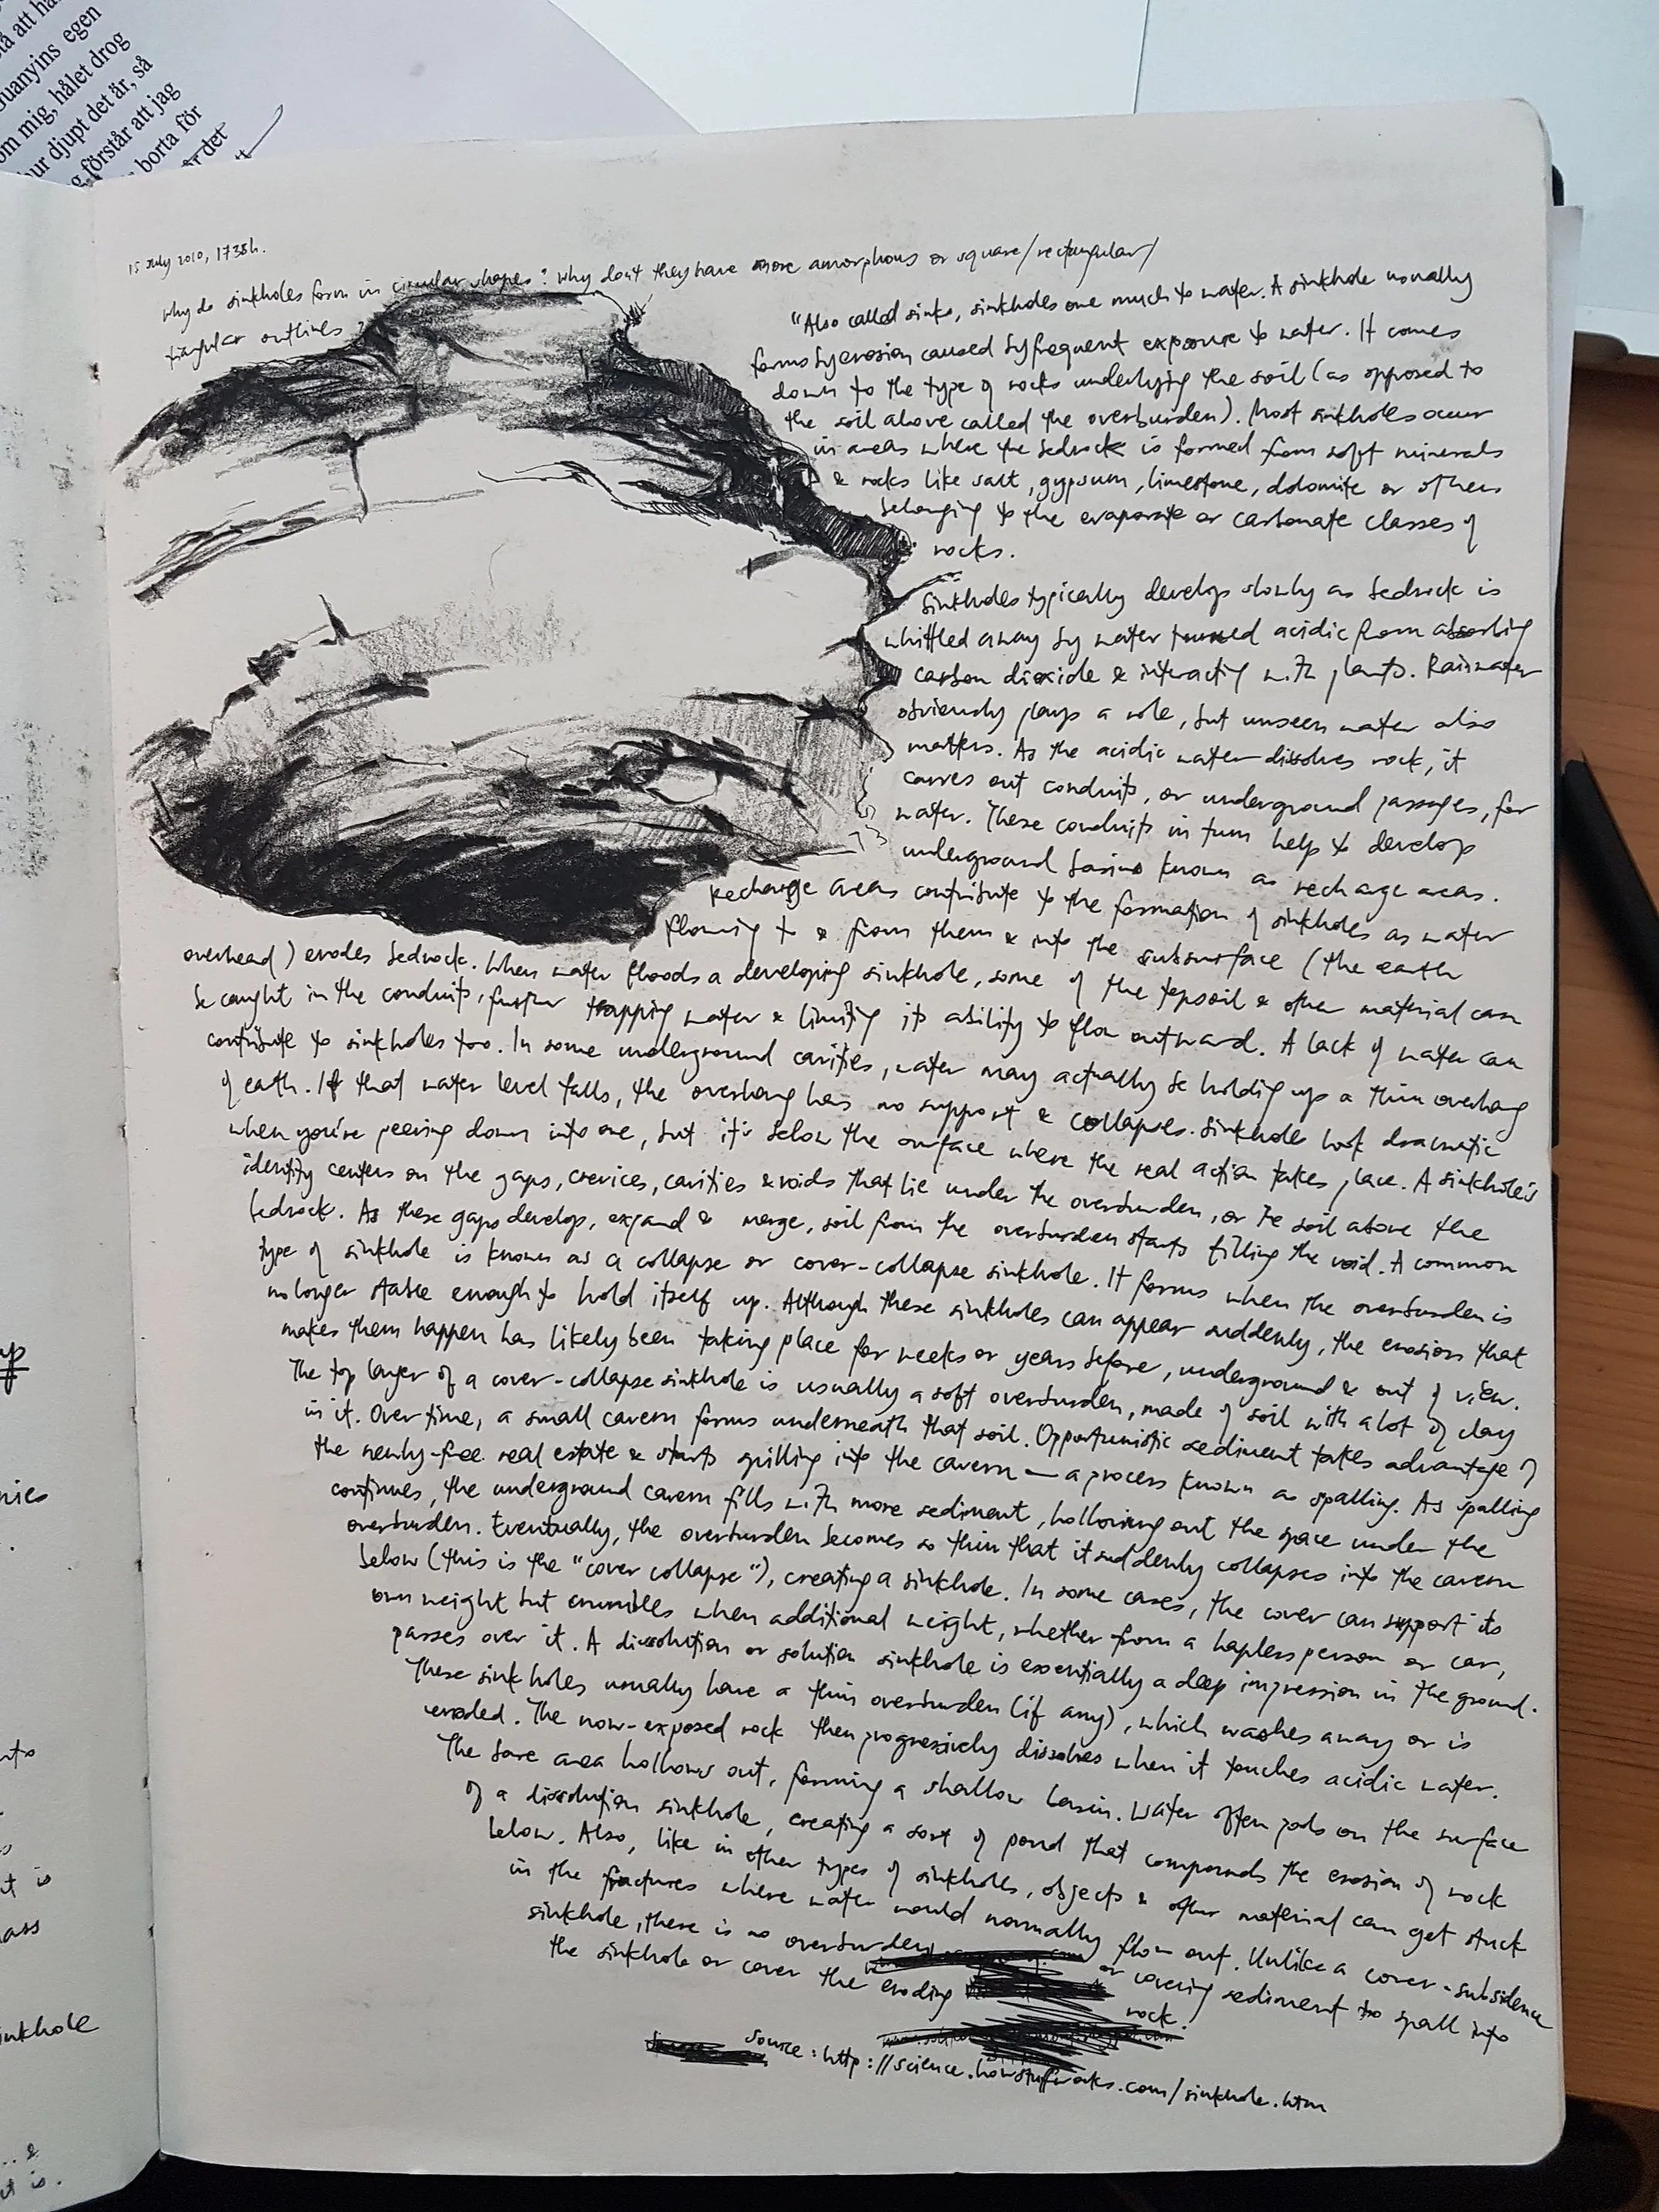 tå att ha
uanyins egen
om mig, hålet drog
ur djupt det är, så
förstår att jag
borta för
är det
15 July 2010, 1738h.
Why do sinkholes form in circular shapes? Why don't they have more amorphous or square/rectangular/
triangular outlines?
"Also called sinks, sinkholes owe much to water. A sinkhole usually
forms by erosion caused by frequent exposure to water. It comes
down to the type of rocks underlying the soil (as opposed to
the soil above called the overburden). Most sinkholes occur
in areas where the bedrock is formed from soft minerals
& rocks like salt, gypsum, limestone, dolomite or others
belonging to the evaporite or carbonate classes of
rocks.
Sinkholes typically develop slowly as bedrock is
whittled away by water turned acidic from absorbing
carbon dioxide & interacting with plants. Rainwater
obviously plays a role, but unseen water also
matters. As the acidic water dissolves rock, it
carves out conduits, or underground passages, for
water. These conduits in turn help to develop
underground basins known as recharge areas.
Recharge areas contribute to the formation of sinkholes as water
flowing to & from them & into the subsurface (the earth
overhead) erodes bedrock. When water floods a developing sinkhole, some of the topsoil & other material can
be caught in the conduits, further trapping water & limiting its ability to flow outward. A lack of water can
contribute to sinkholes too. In some underground cavities, water may actually be holding up a thin overhang
of earth. If that water level falls, the overhang has no support & collapses. Sinkholes look dramatic
when you're peering down into one, but it's below the surface where the real action takes place. A sinkhole's
identity centers on the gaps, crevices, cavities & voids that lie under the overburden, or the soil above the
bedrock. As these gaps develop, expand & merge, soil from the overburden starts filling the void. A common
type of sinkhole is known as a collapse or cover-collapse sinkhole. It forms when the overburden is
no longer stable enough to hold itself up. Although these sinkholes can appear suddenly, the erosion that
makes them happen has likely been taking place for weeks or years before, underground & out of view.
The top layer of a cover-collapse sinkhole is usually a soft overburden, made of soil with a lot of clay
in it. Over time, a small cavern forms underneath that soil. Opportunistic sediment takes advantage of
the newly-free real estate & starts spilling into the cavern — a process known as spalling. As spalling
continues, the underground cavern fills with more sediment, hollowing out the space under the
overburden. Eventually, the overburden becomes so thin that it suddenly collapses into the cavern
below (this is the "cover collapse"), creating a sinkhole. In some cases, the cover can support its
own weight but crumbles when additional weight, whether from a hapless person or car,
passes over it. A dissolution or solution sinkhole is essentially a deep impression in the ground.
These sinkholes usually have a thin overburden (if any), which washes away or is
eroded. The now-exposed rock then progressively dissolves when it touches acidic water.
The bare area hollows out, forming a shallow basin. Water often pools on the surface
of a dissolution sinkhole, creating a sort of pond that compounds the erosion of rock
below. Also, like in other types of sinkholes, objects & other material can get stuck
in the fractures where water would normally flow out. Unlike a cover-subsidence
sinkhole, there is no overburden or covering sediment to spall into
the sinkhole or cover the eroding rock.
source: http://science.howstuffworks.com/sinkhole.htm
inkhole